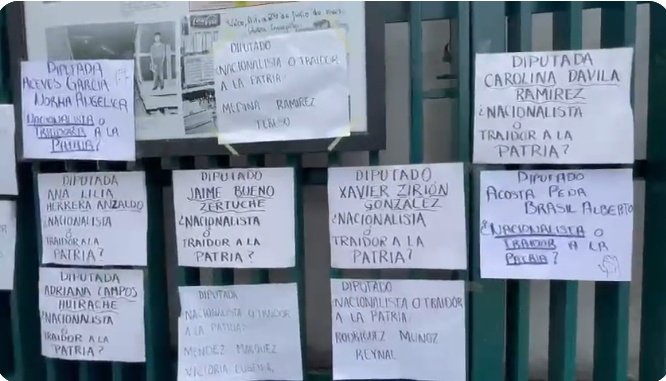 DIPUTADA
ACEVES GARCIA
NORMA ANGELICA
NACIONALISTA O
TRAIDORA A LA
PATRIA?
DIPUTADO
¿NACIONALISTA O TRAIDOR
A LA PATRIA?
MEDINA RAMIREZ
TERESO
DIPUTADA
CAROLINA DAVILA
RAMIREZ
¿NACIONALISTA
O
TRAIDOR A LA
PATRIA?
DIPUTADA
ANA LILIA
HERRERA ANZALDO
¿NACIONALISTA
O
TRAIDOR A LA
PATRIA?
DIPUTADO
JAIME BUENO
ZERTUCHE
¿NACIONALISTA
O
TRAIDOR A LA
PATRIA?
DIPUTADO
XAVIER ZIRIÓN
GONZALEZ
¿NACIONALISTA
O
TRAIDOR A LA
PATRIA?
DIPUTADO
ACOSTA PEÑA
BRASIL ALBERTO
¿NACIONALISTA O
TRAIDOR A LA
PATRIA?
DIPUTADA
ADRIANA CAMPOS
HUIRACHE
¿NACIONALISTA
O
TRAIDOR A LA
PATRIA?
DIPUTADA
NACIONALISTA O TRAIDOR
A LA PATRIA?
MENDEZ MARQUEZ
VICTORIA
DIPUTADO
¿NACIONALISTA O TRAIDOR
A LA PATRIA?
RODRIGUEZ MUÑOZ
REYNAL